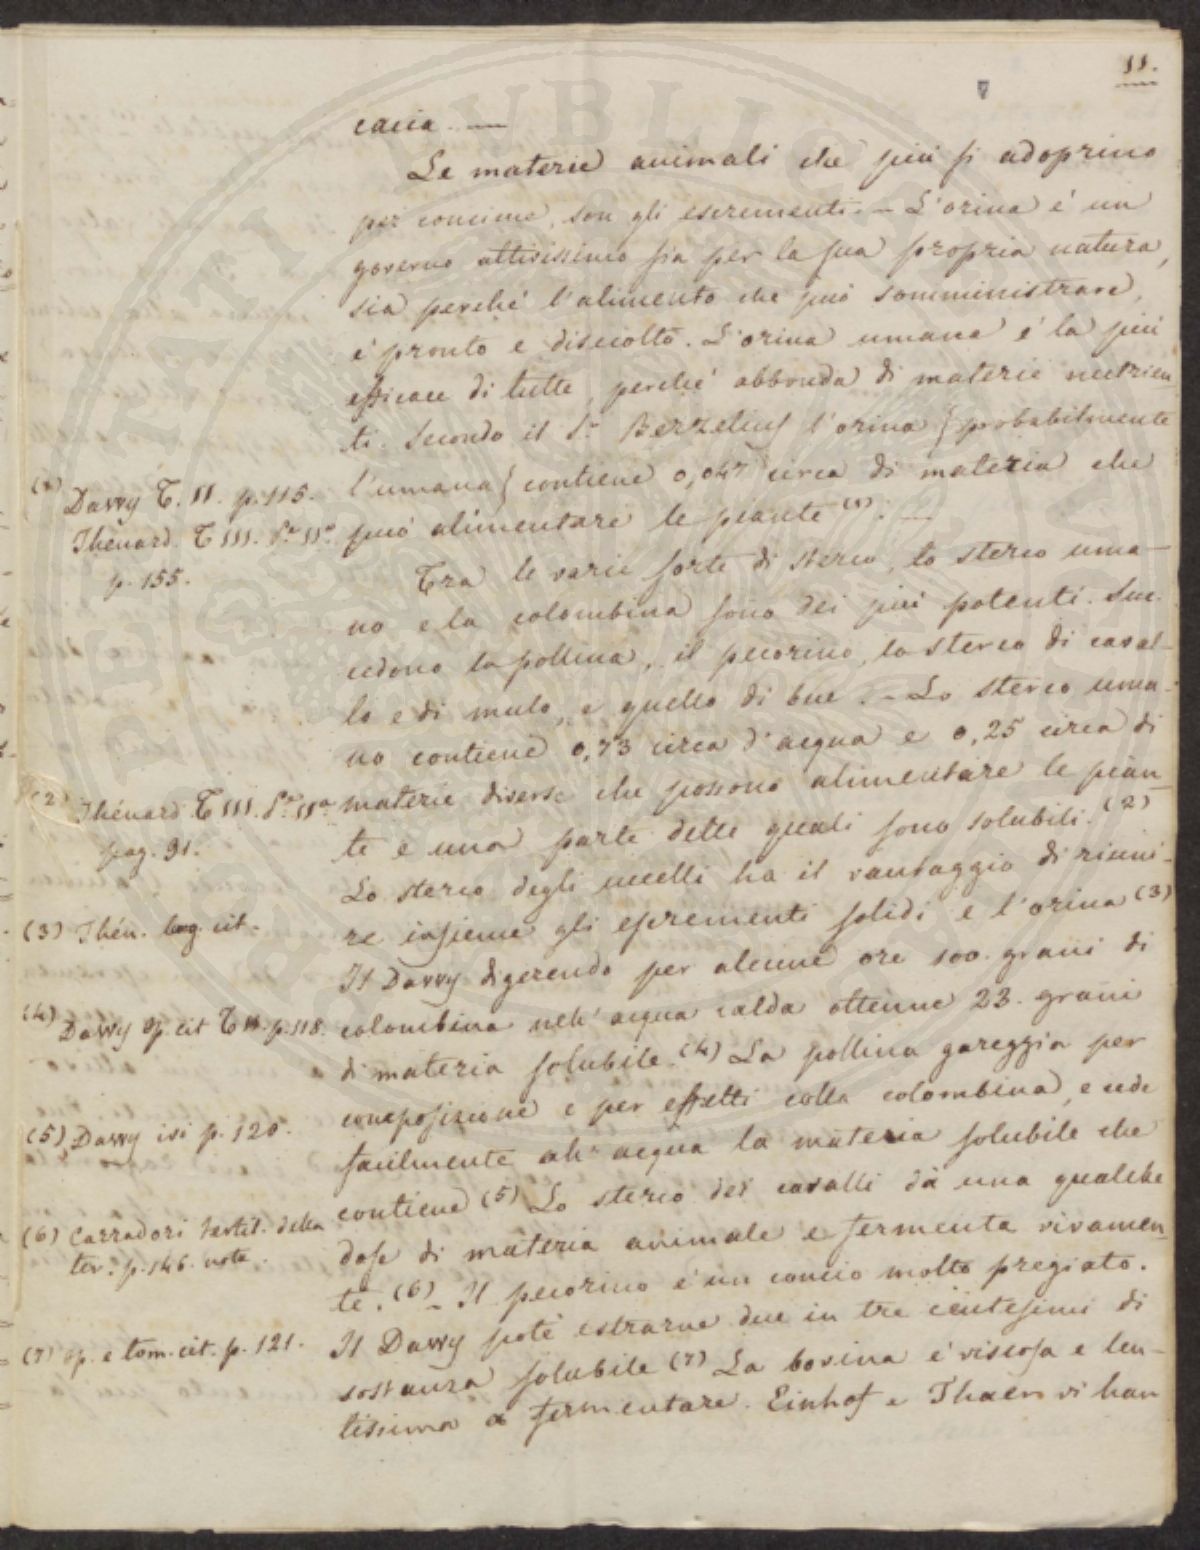 11.
caccia. —
Le materie animali che più si adoprino
per concime, son gli escrementi. — L'orina è un
governo attivissimo sia per la sua propria natura,
sia perché l'alimento che può somministrare,
è pronto e disciolto. L'orina umana è la più
efficace di tutte, perché abbonda di materie nutrien-
ti. Secondo il S.r Berzelius l'orina (probabilmente
l'umana) contiene 0,047 circa di materia che
può alimentare le piante (1). —
(1) Davvy T. II. p. 115.
Thénard. T III. P.e II.a
p. 155.
Tra le varie sorte di sterco, lo sterco uma-
no e la colombina sono dei più potenti. Suc-
cedono la pollina, il pecorino, lo sterco di caval-
lo e di mulo, e quello di bue. — Lo sterco uma-
no contiene 0,73 circa d'acqua e 0,25 circa di
materie diverse che possono alimentare le pian-
te e una parte delle quali sono solubili. (2)
(2) Thénard. T III. P.e II.a
pag. 91.
Lo sterco degli uccelli ha il vantaggio di riuni-
re insieme gli escrementi solidi e l'orina (3)
(3) Thén. cit.
Il Davvy digerendo per alcune ore 100. grani di
colombina nell'acqua calda ottenne 23. grani
di materia solubile. (4) La pollina gareggia per
(4) Davvy op. cit T II. p. 118.
composizione e per effetti colla colombina, e cede
facilmente all'acqua la materia solubile che
contiene (5) Lo sterco dei cavalli dà una qualche
(5) Davvy ivi p. 120.
dose di materia animale e fermenta vivamen-
te. (6) — Il pecorino è un concio molto pregiato.
(6) Carradori fertil. della
ter. p. 146. nota.
Il Davvy poté estrarne due in tre centesimi di
sostanza solubile (7) La bovina è viscosa e len-
(7) op. e tom. cit. p. 121.
tissima a fermentare. Einhof e Thaer vi han